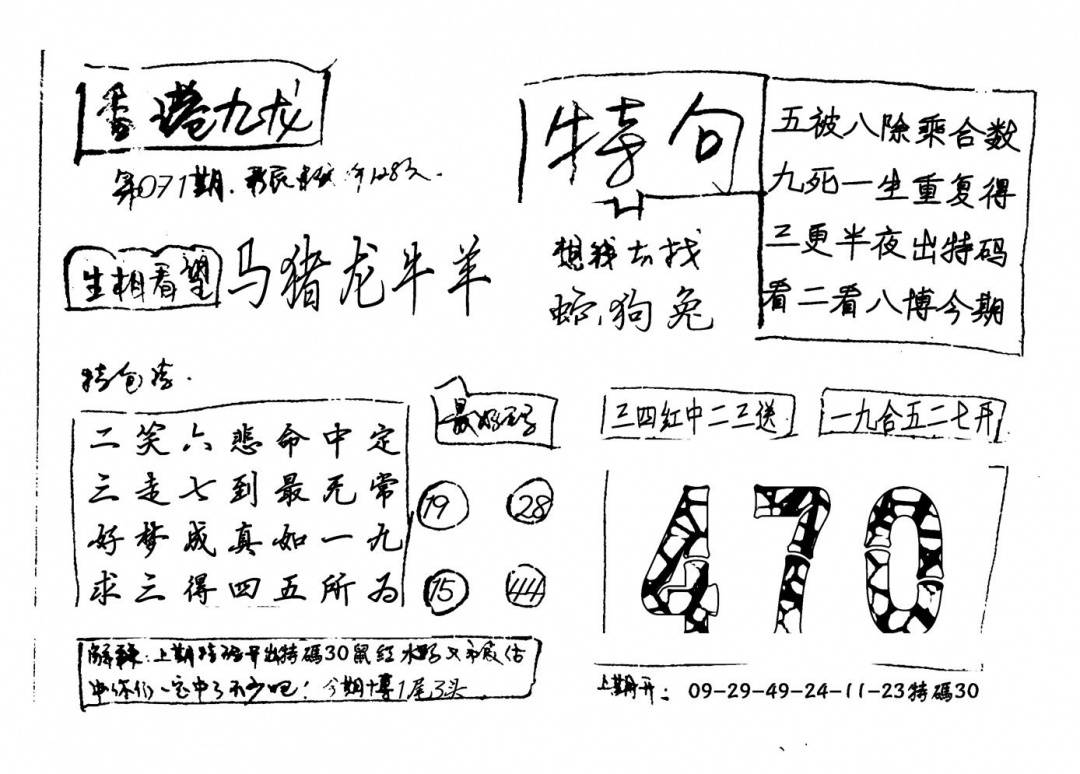 香港九龙
第071期
生相看望 马猪龙牛羊
特句
想我去找
蛇狗兔
五被八除乘合数
九死一生重复得
三更半夜出特码
看二看八博今期
二笑六悲命中定
三走七到最无常
好梦成真如一九
求三得四五所为
19 28
15 44
三四红中二三送
一九合五二七开
470
解释:上期特码开出特碼30鼠红水
中你们一定中了不少吧! 今期博1尾3头
上期开: 09-29-49-24-11-23特碼30